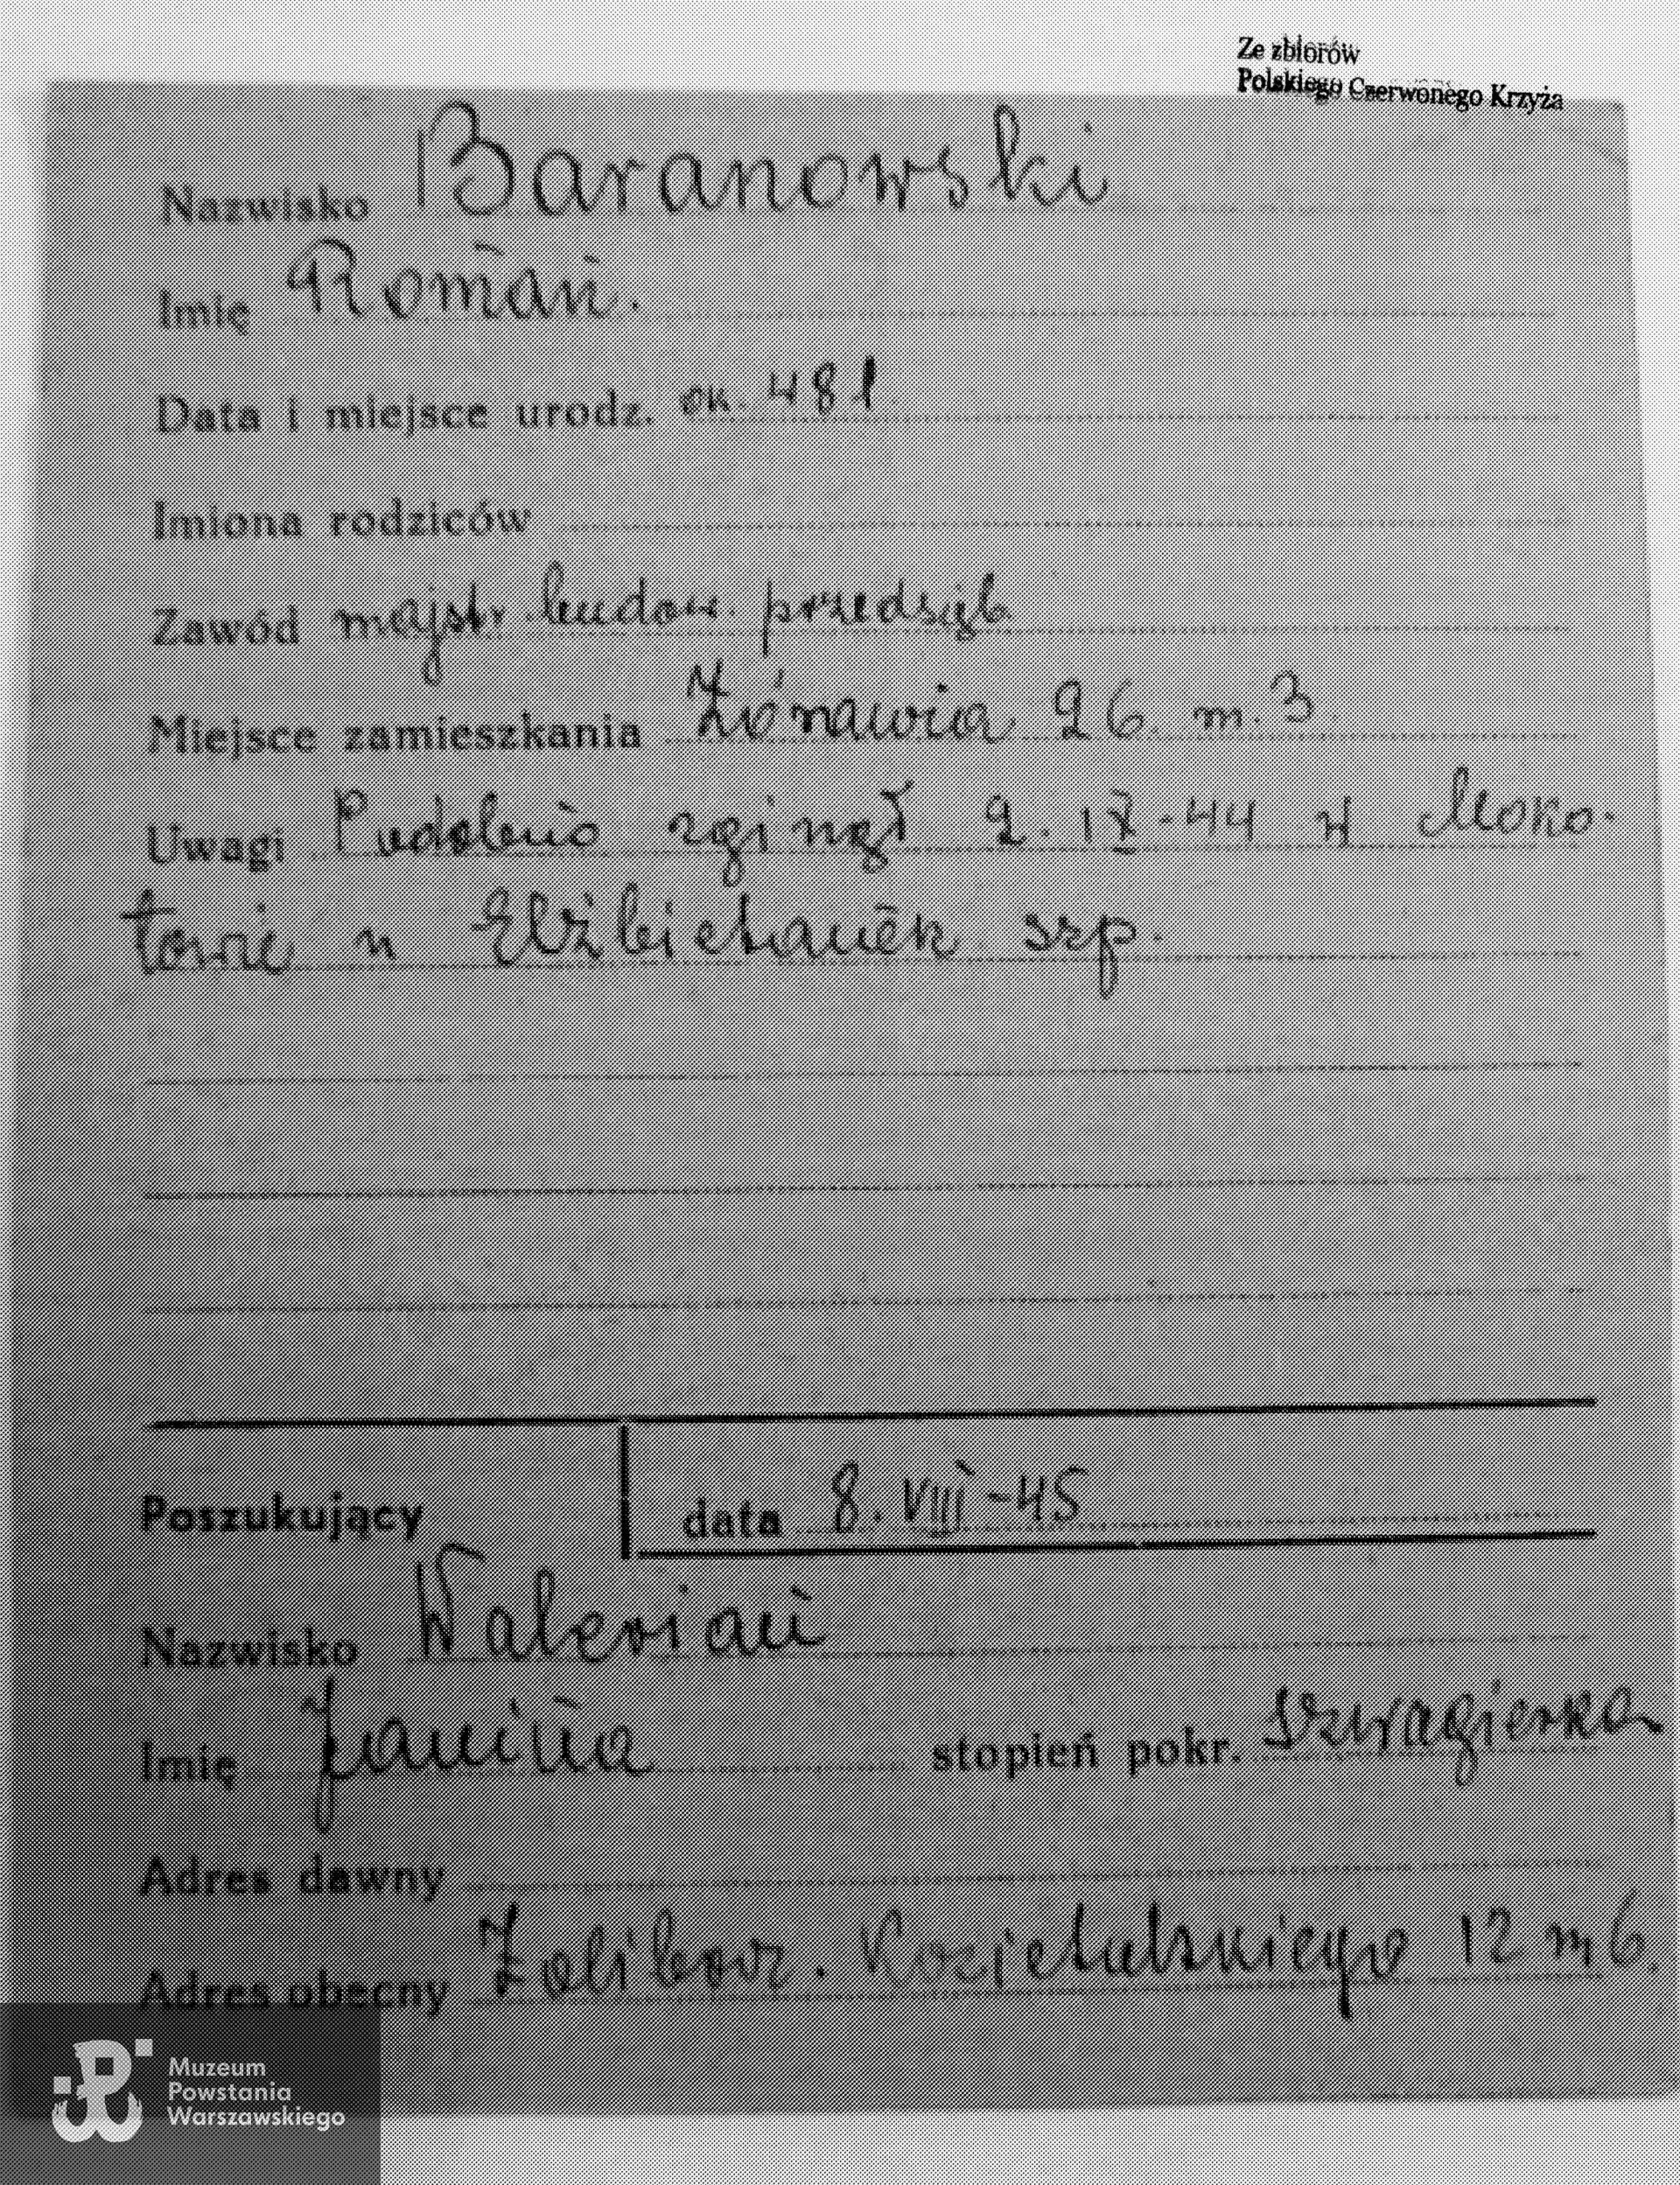 Ze zbiorów
Polskiego Czerwonego Krzyża
Nazwisko Baranowski
Imię Roman.
Data i miejsce urodz. ok. 48 l.
Imiona rodziców
Zawód majstr. budow. przedsięb.
Miejsce zamieszkania Żórawia 26 m. 3
Uwagi Podobno zginął 2. IX-44 w Moko-
towie u Elżbietanek szp.
Poszukujący data 8. VIII-45
Nazwisko Walerian
Imię Janina stopień pokr. szwagierka
Adres dawny
Adres obecny Żoliborz. Kozietulskiego 12 m 6.
Muzeum
Powstania
Warszawskiego